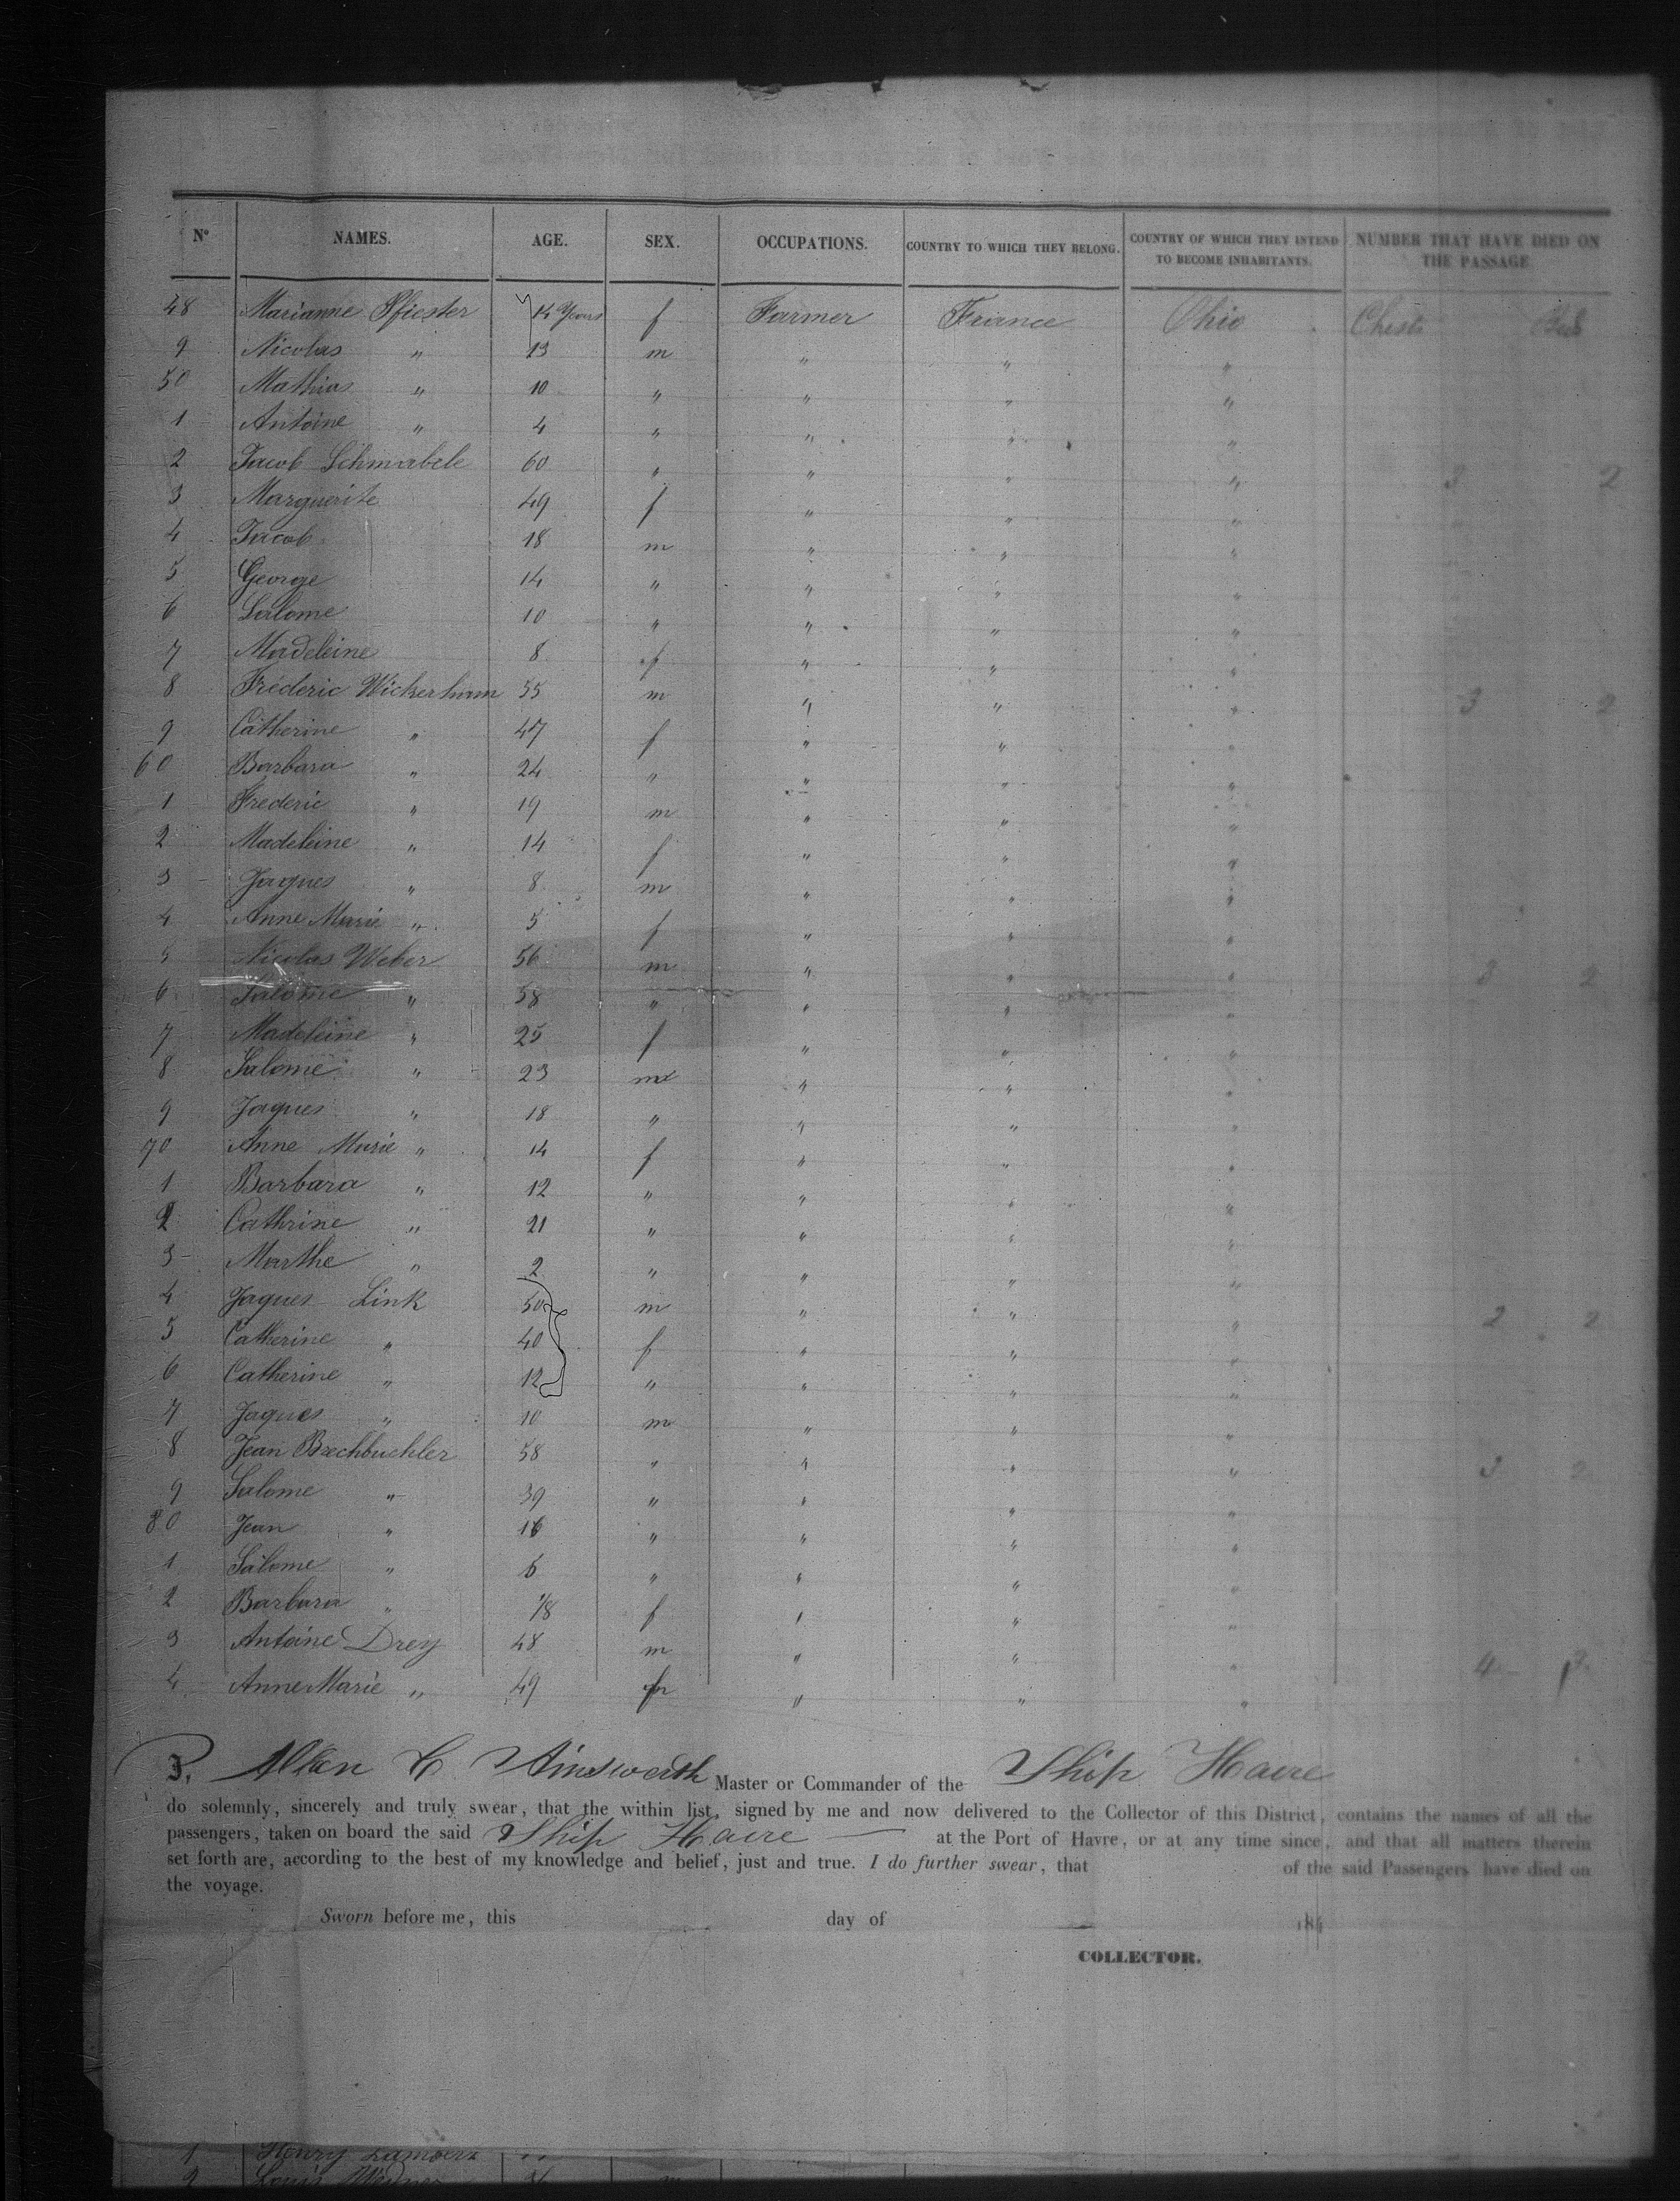 Nº NAMES. AGE. SEX. OCCUPATIONS. COUNTRY TO WHICH THEY BELONG. COUNTRY OF WHICH THEY INTEND TO BECOME INHABITANTS. NUMBER THAT HAVE DIED ON THE PASSAGE
48 Marianne Pfiester 14 Years f Farmer France Ohio Chests
9 Nicolas " 13 m " " "
50 Mathias " 10 " " " "
1 Antoine " 4 " " " "
2 Jacob Schnabele 60 " " " " 3 2
3 Marguerite 49 f " " "
4 Jacob 18 m " " "
5 George 14 " " " "
6 Salome 10 " " " "
7 Madeleine 8 f " " "
8 Fréderic Wickersham 55 m " " " 3 2
9 Catherine " 47 f " " "
60 Barbara " 24 " " " "
1 Frederic " 19 m " " "
2 Madeleine " 14 f " " "
3 Jaques " 8 m " " "
4 Anne Marie " 5 f " " "
5 Nicolas Weber 56 m " " " 3 2
6 Salome " 58 " " " "
7 Madeleine " 25 f " " "
8 Salome " 23 m " " "
9 Jaques " 18 " " " "
70 Anne Marie " 14 f " " "
1 Barbara " 12 " " " "
2 Cathrine " 21 " " " "
3 Marthe " 2 " " " "
4 Jaques Link 50 m " " " 2 2
5 Catherine " 40 f " " "
6 Catherine " 12 " " " "
7 Jaques " 10 m " " "
8 Jean Brechbuehler 58 " " " " 3 2
9 Salome " 39 " " " "
80 Jean " 16 " " " "
1 Salome " 5 " " " "
2 Barbara " 1/8 f " " "
3 Antoine Drey 48 m " " "
4 Anne Marie " 49 f " " " 4
I, Allen C Ainsworth Master or Commander of the Ship Havre
do solemnly, sincerely and truly swear, that the within list, signed by me and now delivered to the Collector of this District, contains the names of all the
passengers, taken on board the said Ship Havre — at the Port of Havre, or at any time since, and that all matters therein
set forth are, according to the best of my knowledge and belief, just and true. I do further swear, that of the said Passengers have died on
the voyage.
Sworn before me, this day of 184
COLLECTOR.
1 Henry
2 Louis